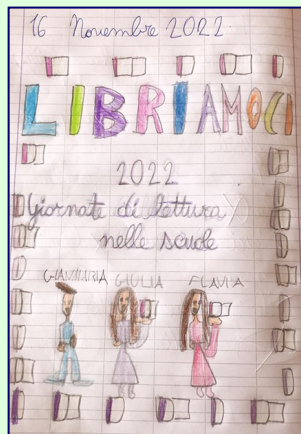 16 Novembre 2022
LIBRIAMOCI
2022
Giornate di lettura
nelle scuole
GIANMARIA GIULIA FLAVIA